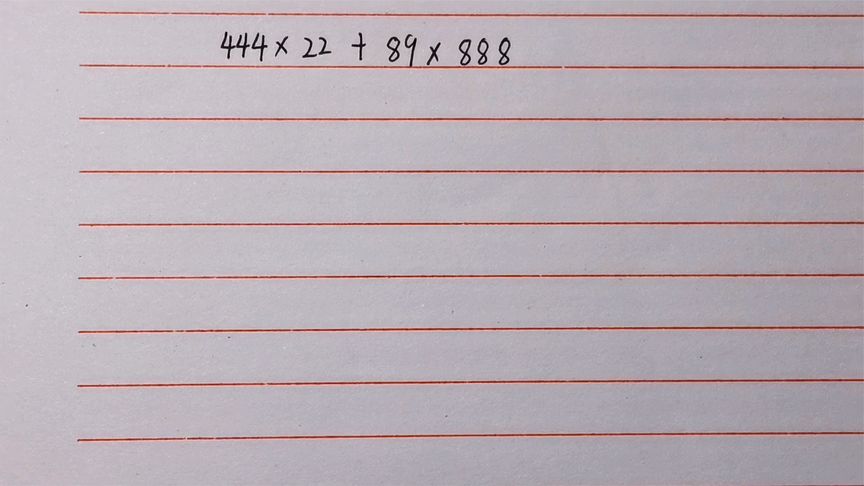 444 × 22 + 89 × 888